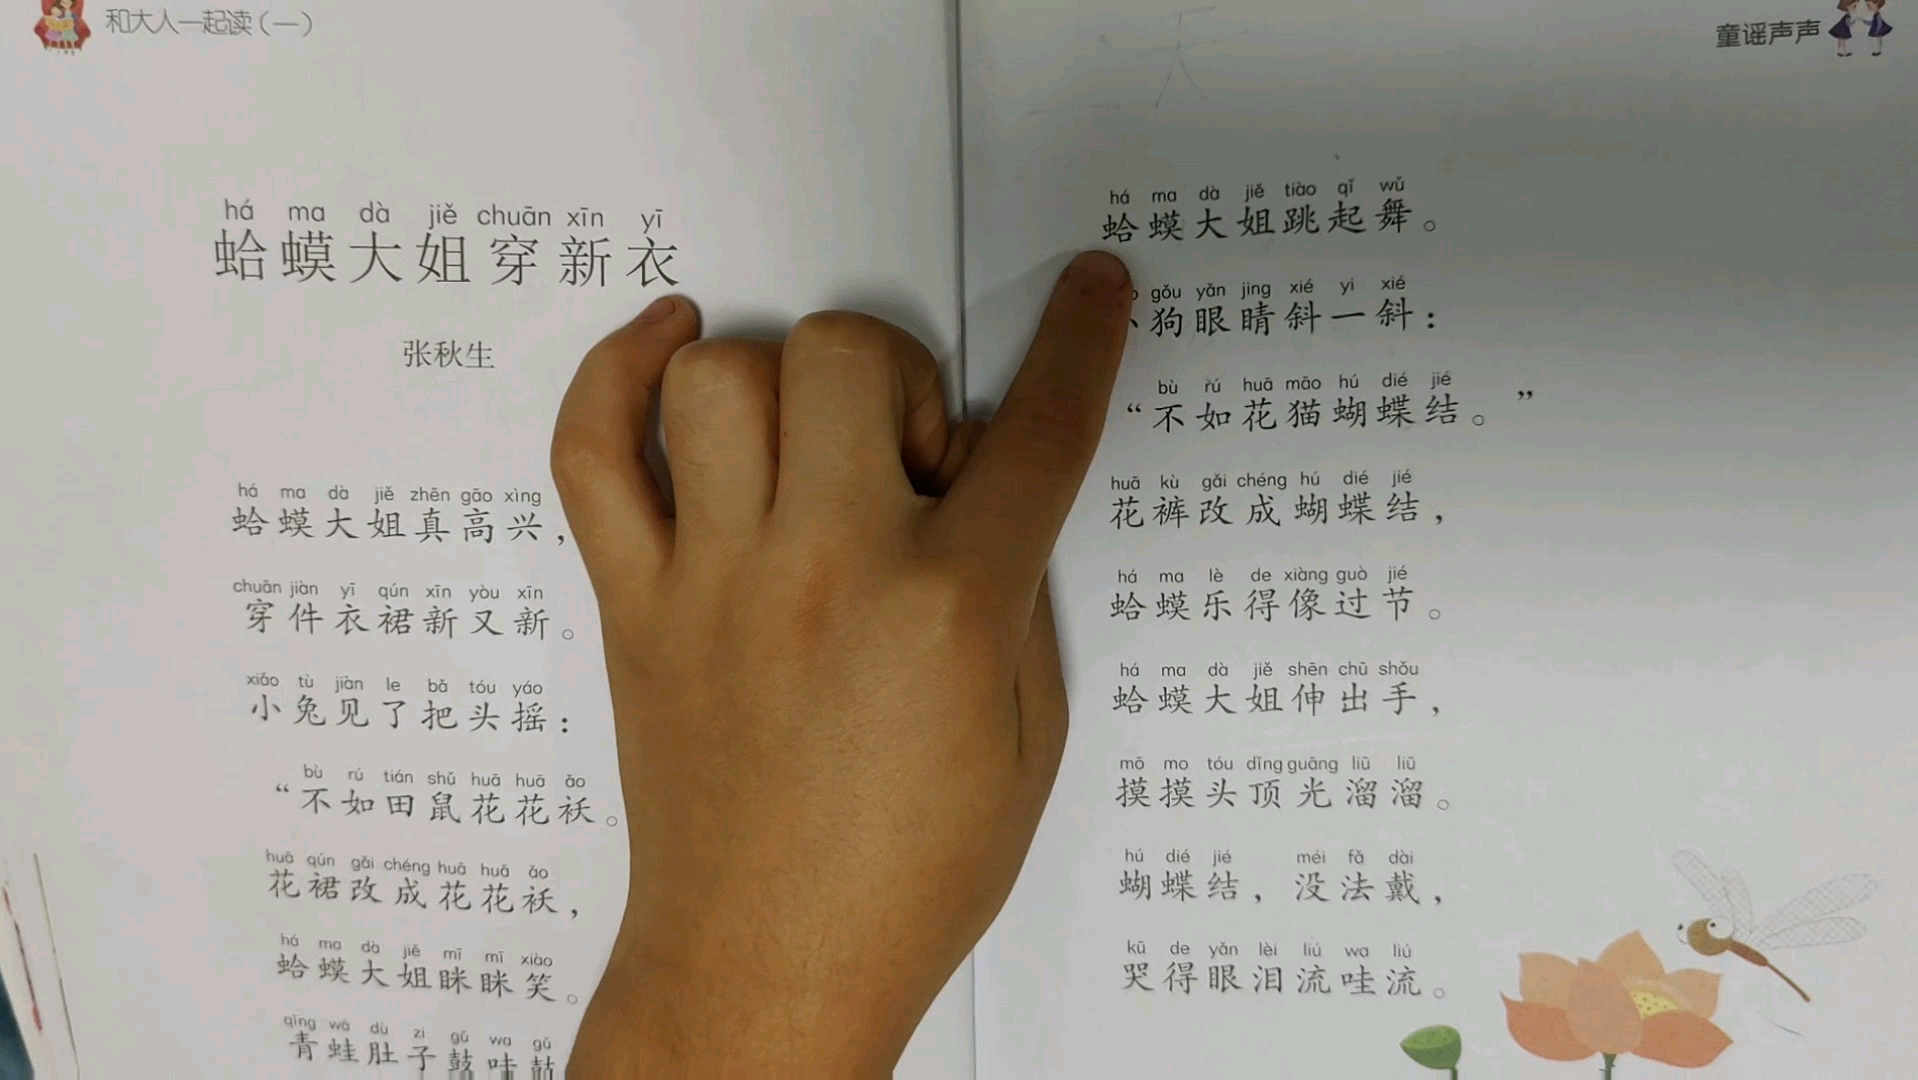 和大人一起读（一）
há ma dà jiě chuān xīn yī
蛤蟆大姐穿新衣
张秋生
há ma dà jiě zhēn gāo xìng
蛤蟆大姐真高兴，
chuān jiàn yī qún xīn yòu xīn
穿件衣裙新又新。
xiǎo tù jiàn le bǎ tóu yáo
小兔见了把头摇：
bù rú tián shǔ huā huā ǎo
“不如田鼠花花袄。
huā qún gǎi chéng huā huā ǎo
花裙改成花花袄，
há ma dà jiě mī mī xiào
蛤蟆大姐眯眯笑。
qīng wā dù zi gǔ wa gǔ
青蛙肚子鼓哇鼓
童谣声声
há ma dà jiě tiào qǐ wǔ
蛤蟆大姐跳起舞。
gǒu yǎn jing xié yi xié
狗眼睛斜一斜：
bù rú huā māo hú dié jié
“不如花猫蝴蝶结。”
huā kù gǎi chéng hú dié jié
花裤改成蝴蝶结，
há ma lè de xiàng guò jié
蛤蟆乐得像过节。
há ma dà jiě shēn chū shǒu
蛤蟆大姐伸出手，
mō mo tóu dǐng guāng liū liū
摸摸头顶光溜溜。
hú dié jié méi fǎ dài
蝴蝶结，没法戴，
kū de yǎn lèi liú wa liú
哭得眼泪流哇流。